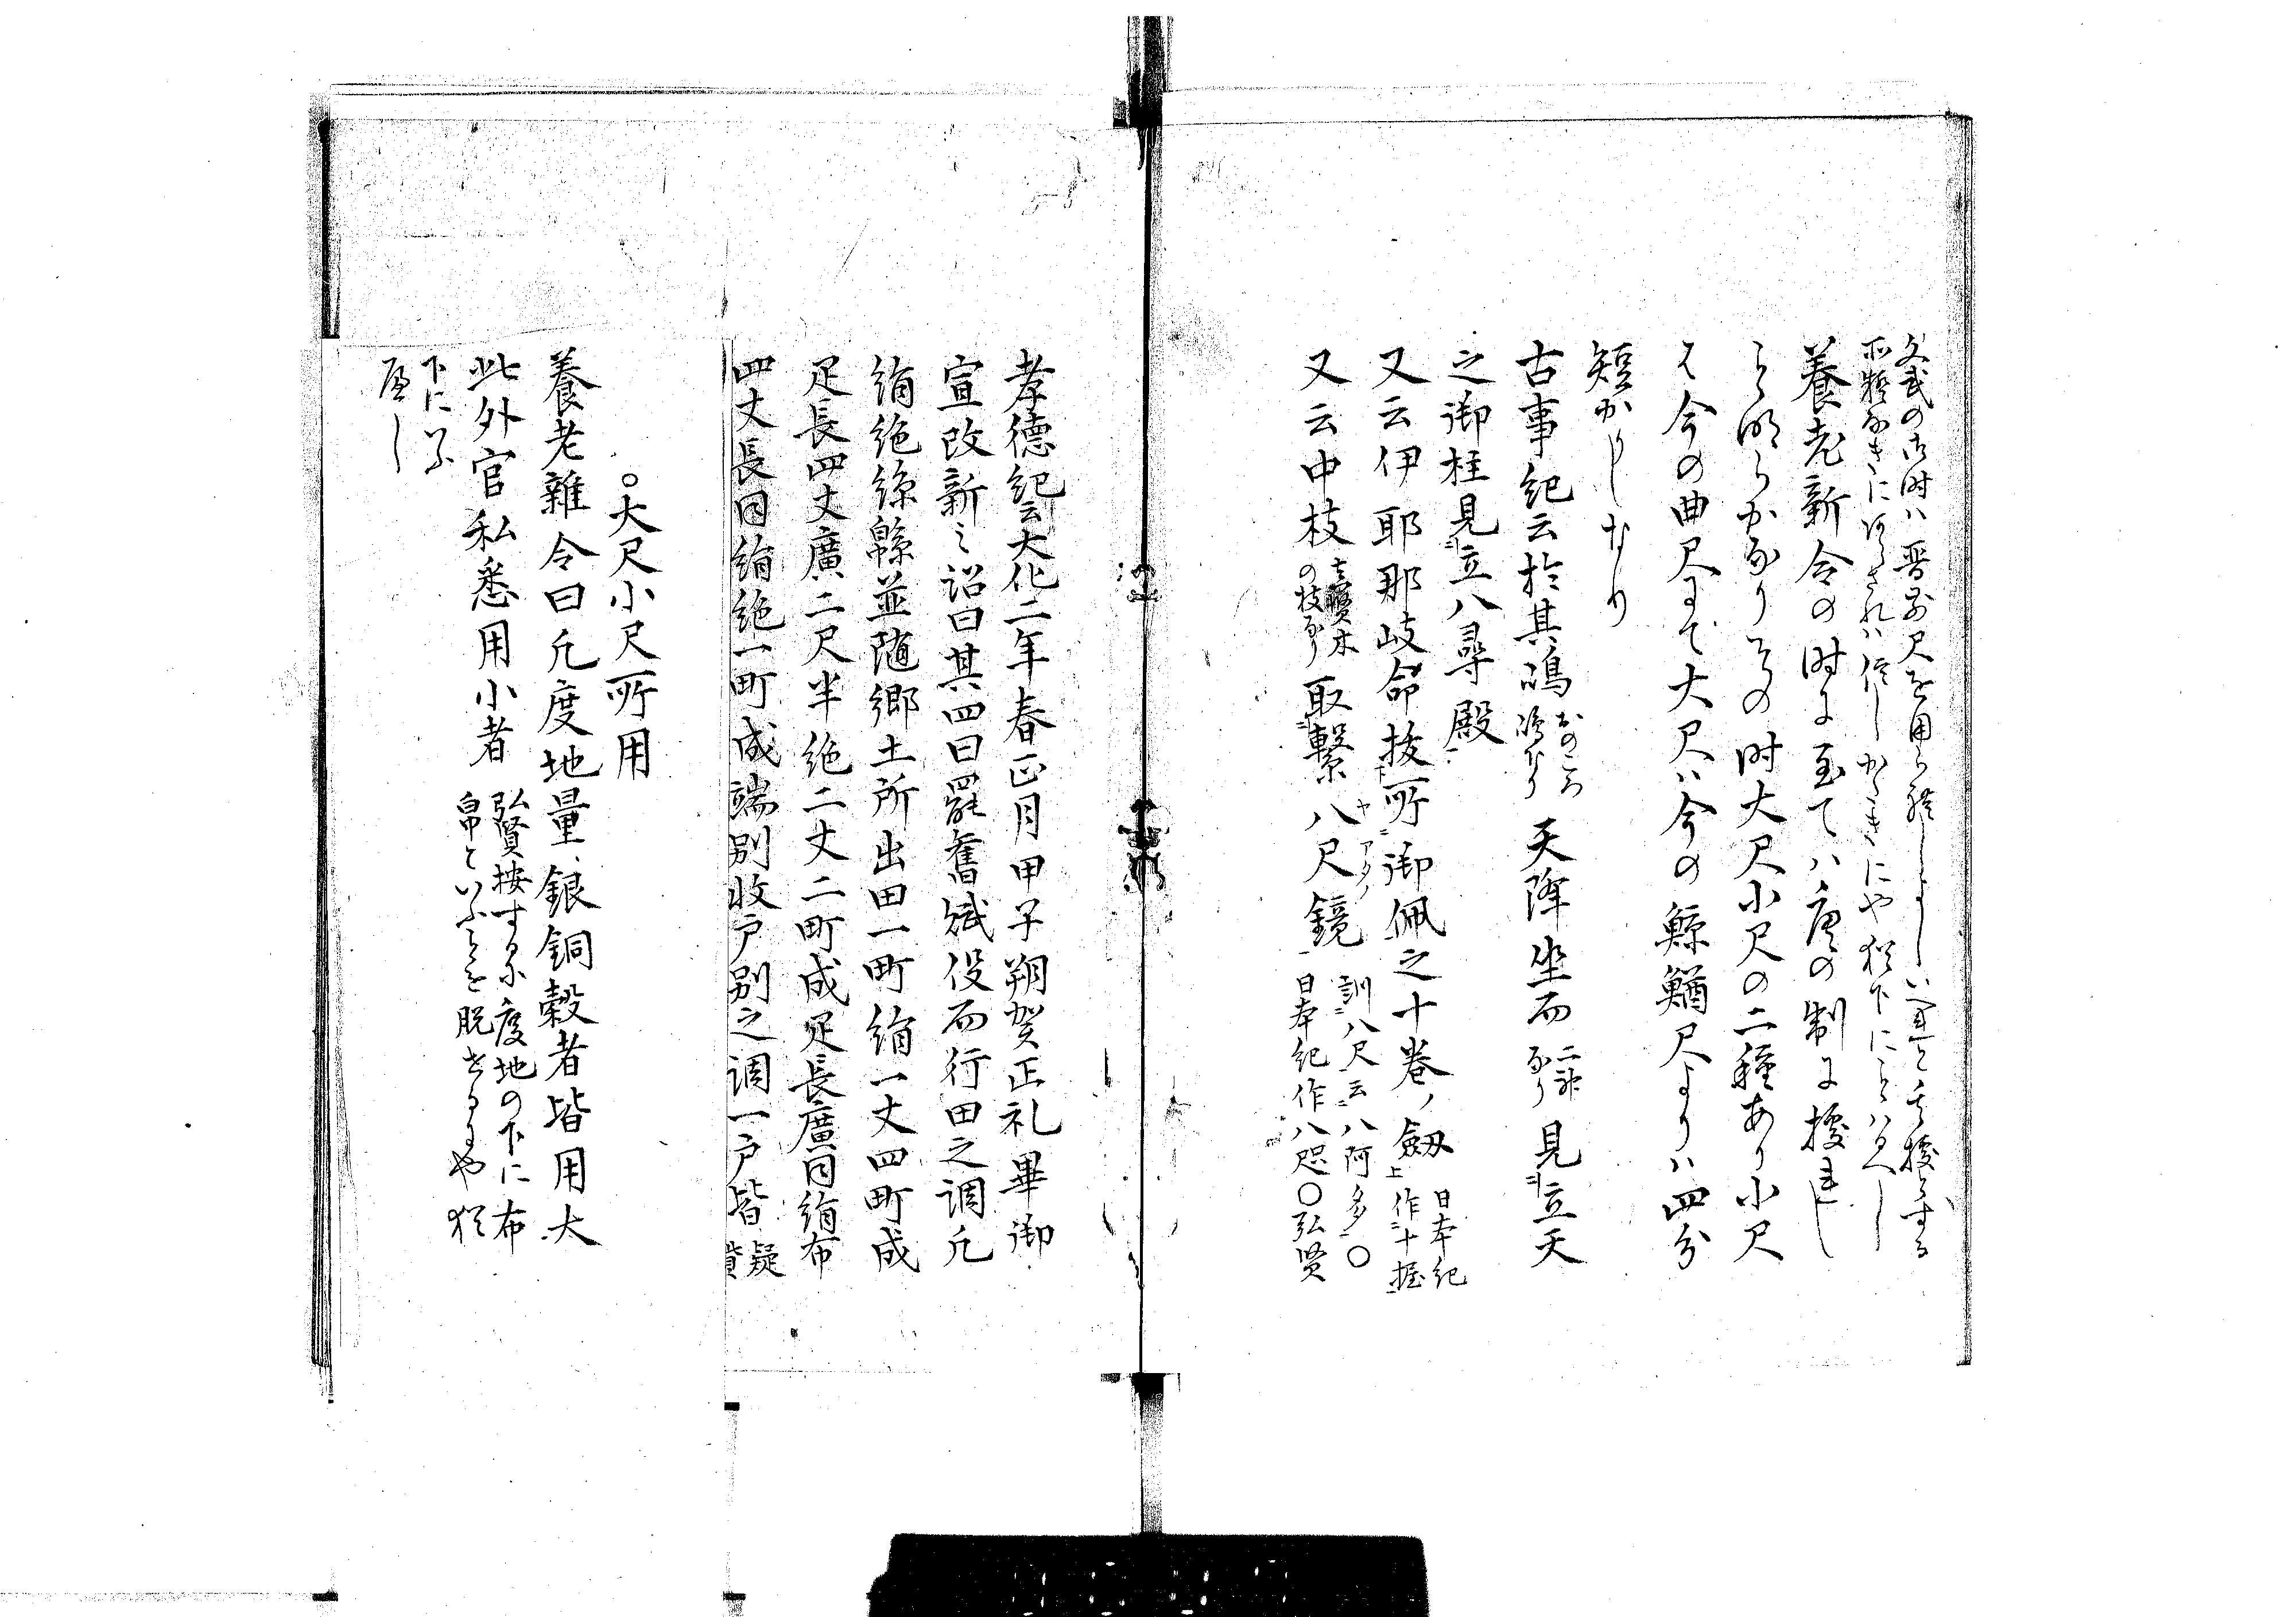 文武の御時ハ晋前尺を用られしよしいへとも據とする
所離なきに似たれハ信しかたきにや猶下にことハるへし
養老新令の時に至てハ唐の制に據れし
こと明らかなりその時大尺小尺の二種あり小尺
は今の曲尺にて大尺ハ今の鯨鯺尺よりハ四分
短かりしなり
古事紀云於其嶋おのころ嶋なり天降坐而二神なり見立天
之御柱見立八尋殿
又云伊耶那岐命拔所御佩之十巻ノ劔日本紀上作十握
又云中枝賢木の枝なり取繋八尺鏡訓八尺云八阿多〇日本紀作八咫〇弘賢
孝徳紀云大化二年春正月甲子朔賀正礼畢御
宣改新之詔曰其四曰罷舊賦役而行田之調凡
絹絁絲緜並随郷土所出田一町絹一丈四町成
疋長四丈廣二尺半絁二丈二町成疋長廣同絹布
四丈長同絹絁一町成端別收戸別之調一戸皆疑貲
〇大尺小尺所用
養老雜令曰凡度地量銀銅穀者皆用大
此外官私悉用小者弘賢按するに度地の下に布帛といふことを脱せるにや猶
下にいふ
へし